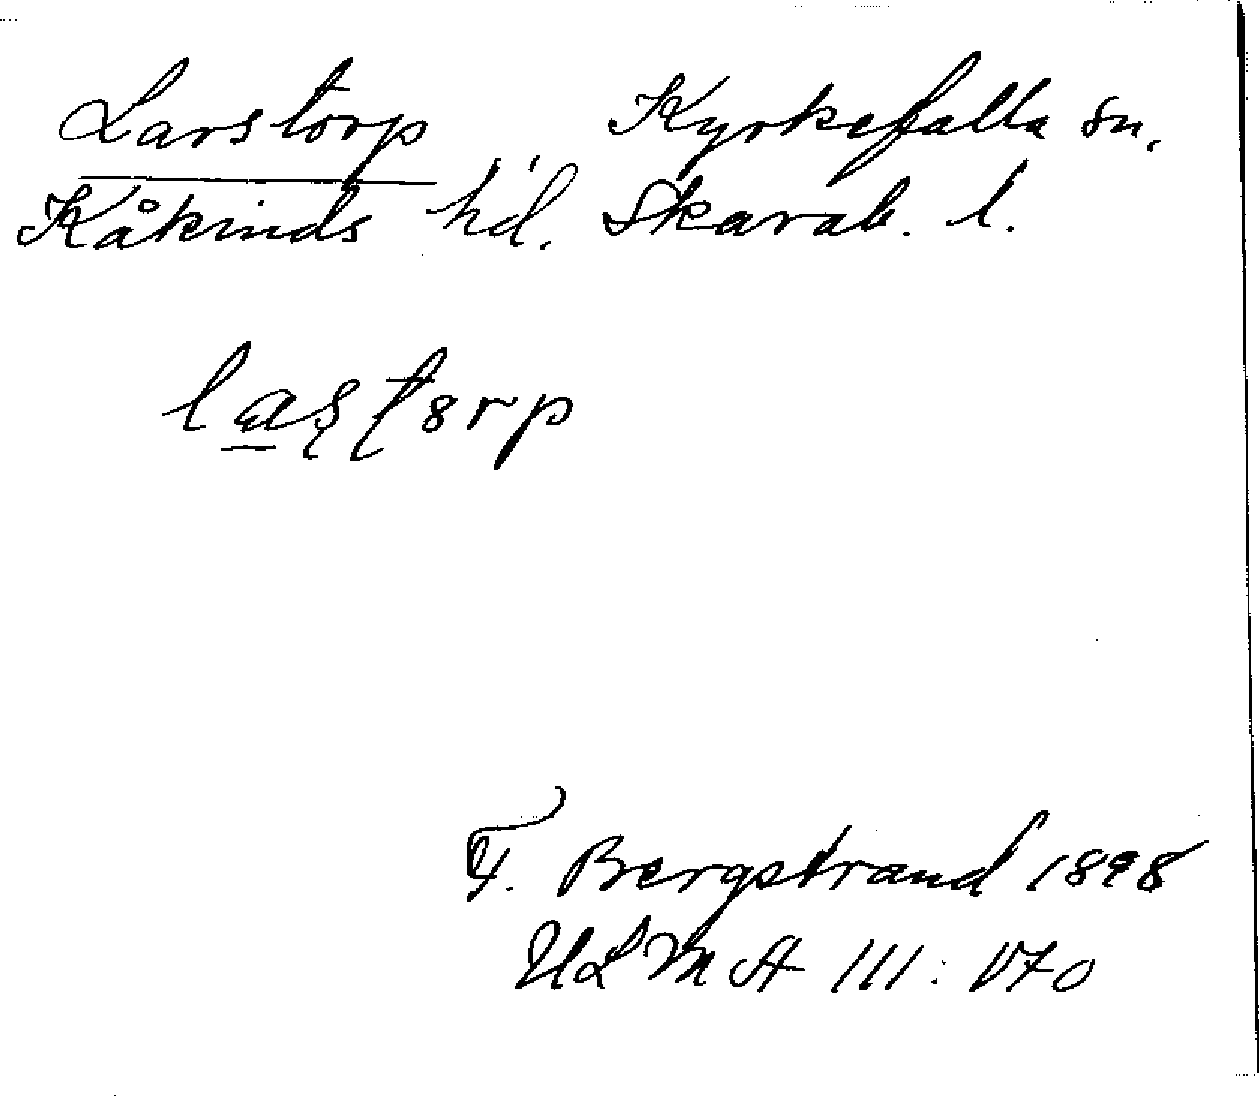 Larstorp Kyrkefalla sn.
Kåkinds hd. Skarab. l.
lasto̤rp
F. Bergstrand 1898
ULMA 111:170